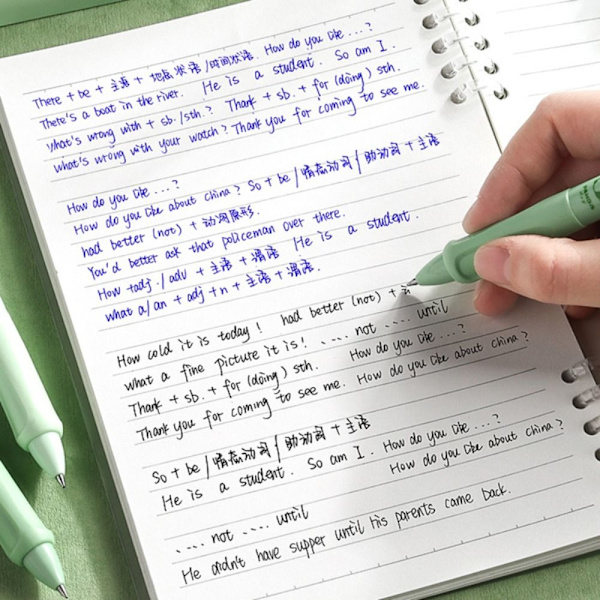 There + be + 主语 + 地点状语/时间状语. How do you like...?
There's a boat in the river. He is a student. So am I.
What's wrong with + sb./sth.? Thank + sb. + for (doing) sth.
What's wrong with your watch? Thank you for coming to see me.
How do you like...?
How do you like about china? So + be/情态动词/助动词 + 主语
had better (not) + 动词原形.
You'd better ask that policeman over there.
How + adj./adv + 主语 + 谓语 He is a student.
what a/an + adj + n + 主语 + 谓语.
How cold it is today! had better (not) +
what a fine picture it is! .... not .... until
Thank + sb. + for (doing) sth. How do you like...?
Thank you for coming to see me. How do you like about china?
So + be/情态动词/助动词 + 主语
He is a student. So am I. How do you like...?
How do you like about china?
.... not .... until
He didn't have supper until his parents came back.